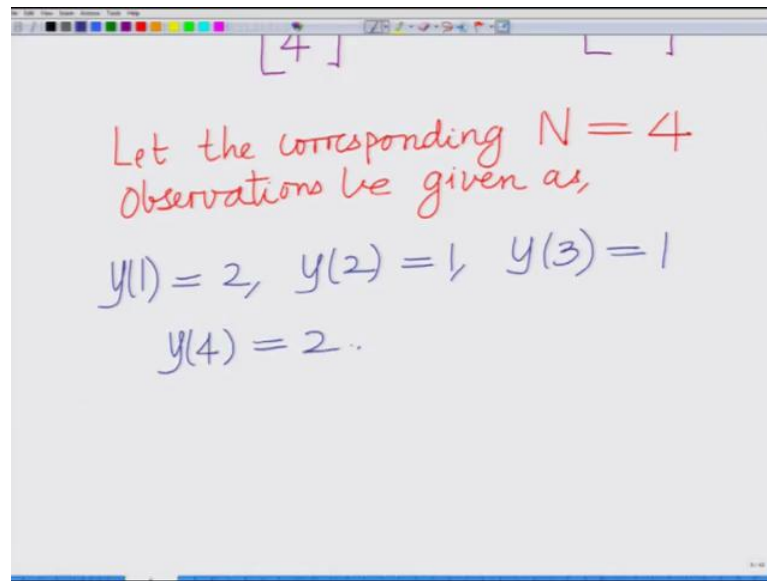 [4] [ ]
Let the corresponding N = 4
Observations be given as,
y(1) = 2, y(2) = 1, y(3) = 1
y(4) = 2.